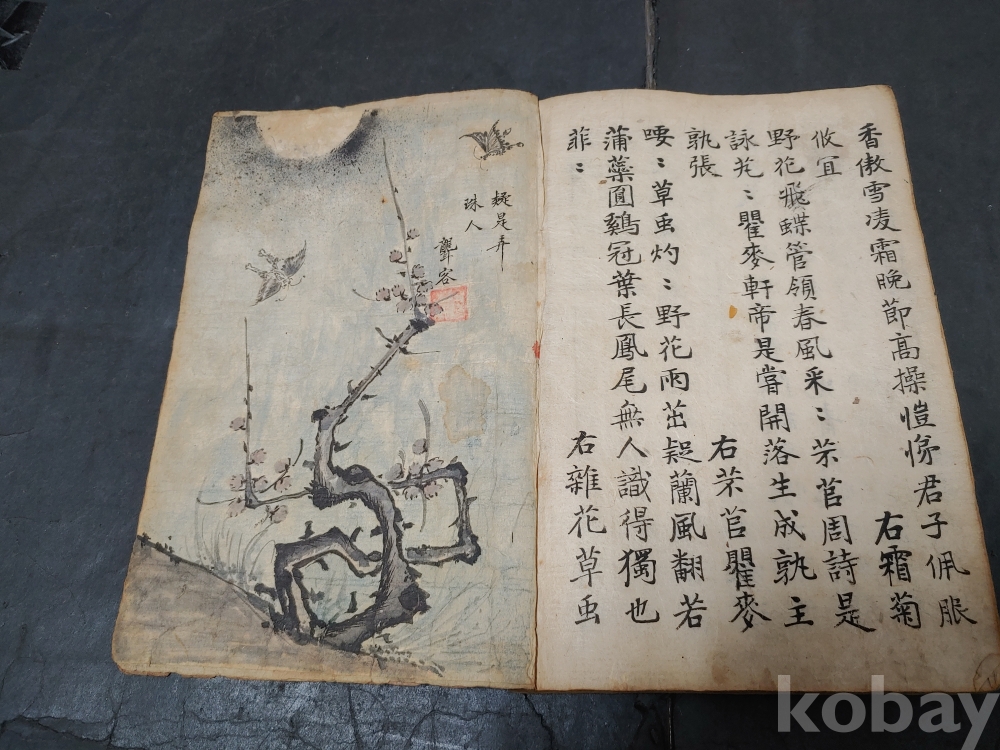 香傲雪凌霜晚節高操愷悌君子佩服
攸冝　右霜菊
野花飛蝶管領春風采：芣苢周詩是
詠芃：瞿麥軒帝是嘗開落生成孰主
孰張　右芣苢瞿麥
喓：草虫灼：野花雨茁疑蘭風翻若
蒲藥圓鷄冠葉長鳳尾無人識得獨也
菲：　右雜花草虫
疑是弄
珠人
kobay